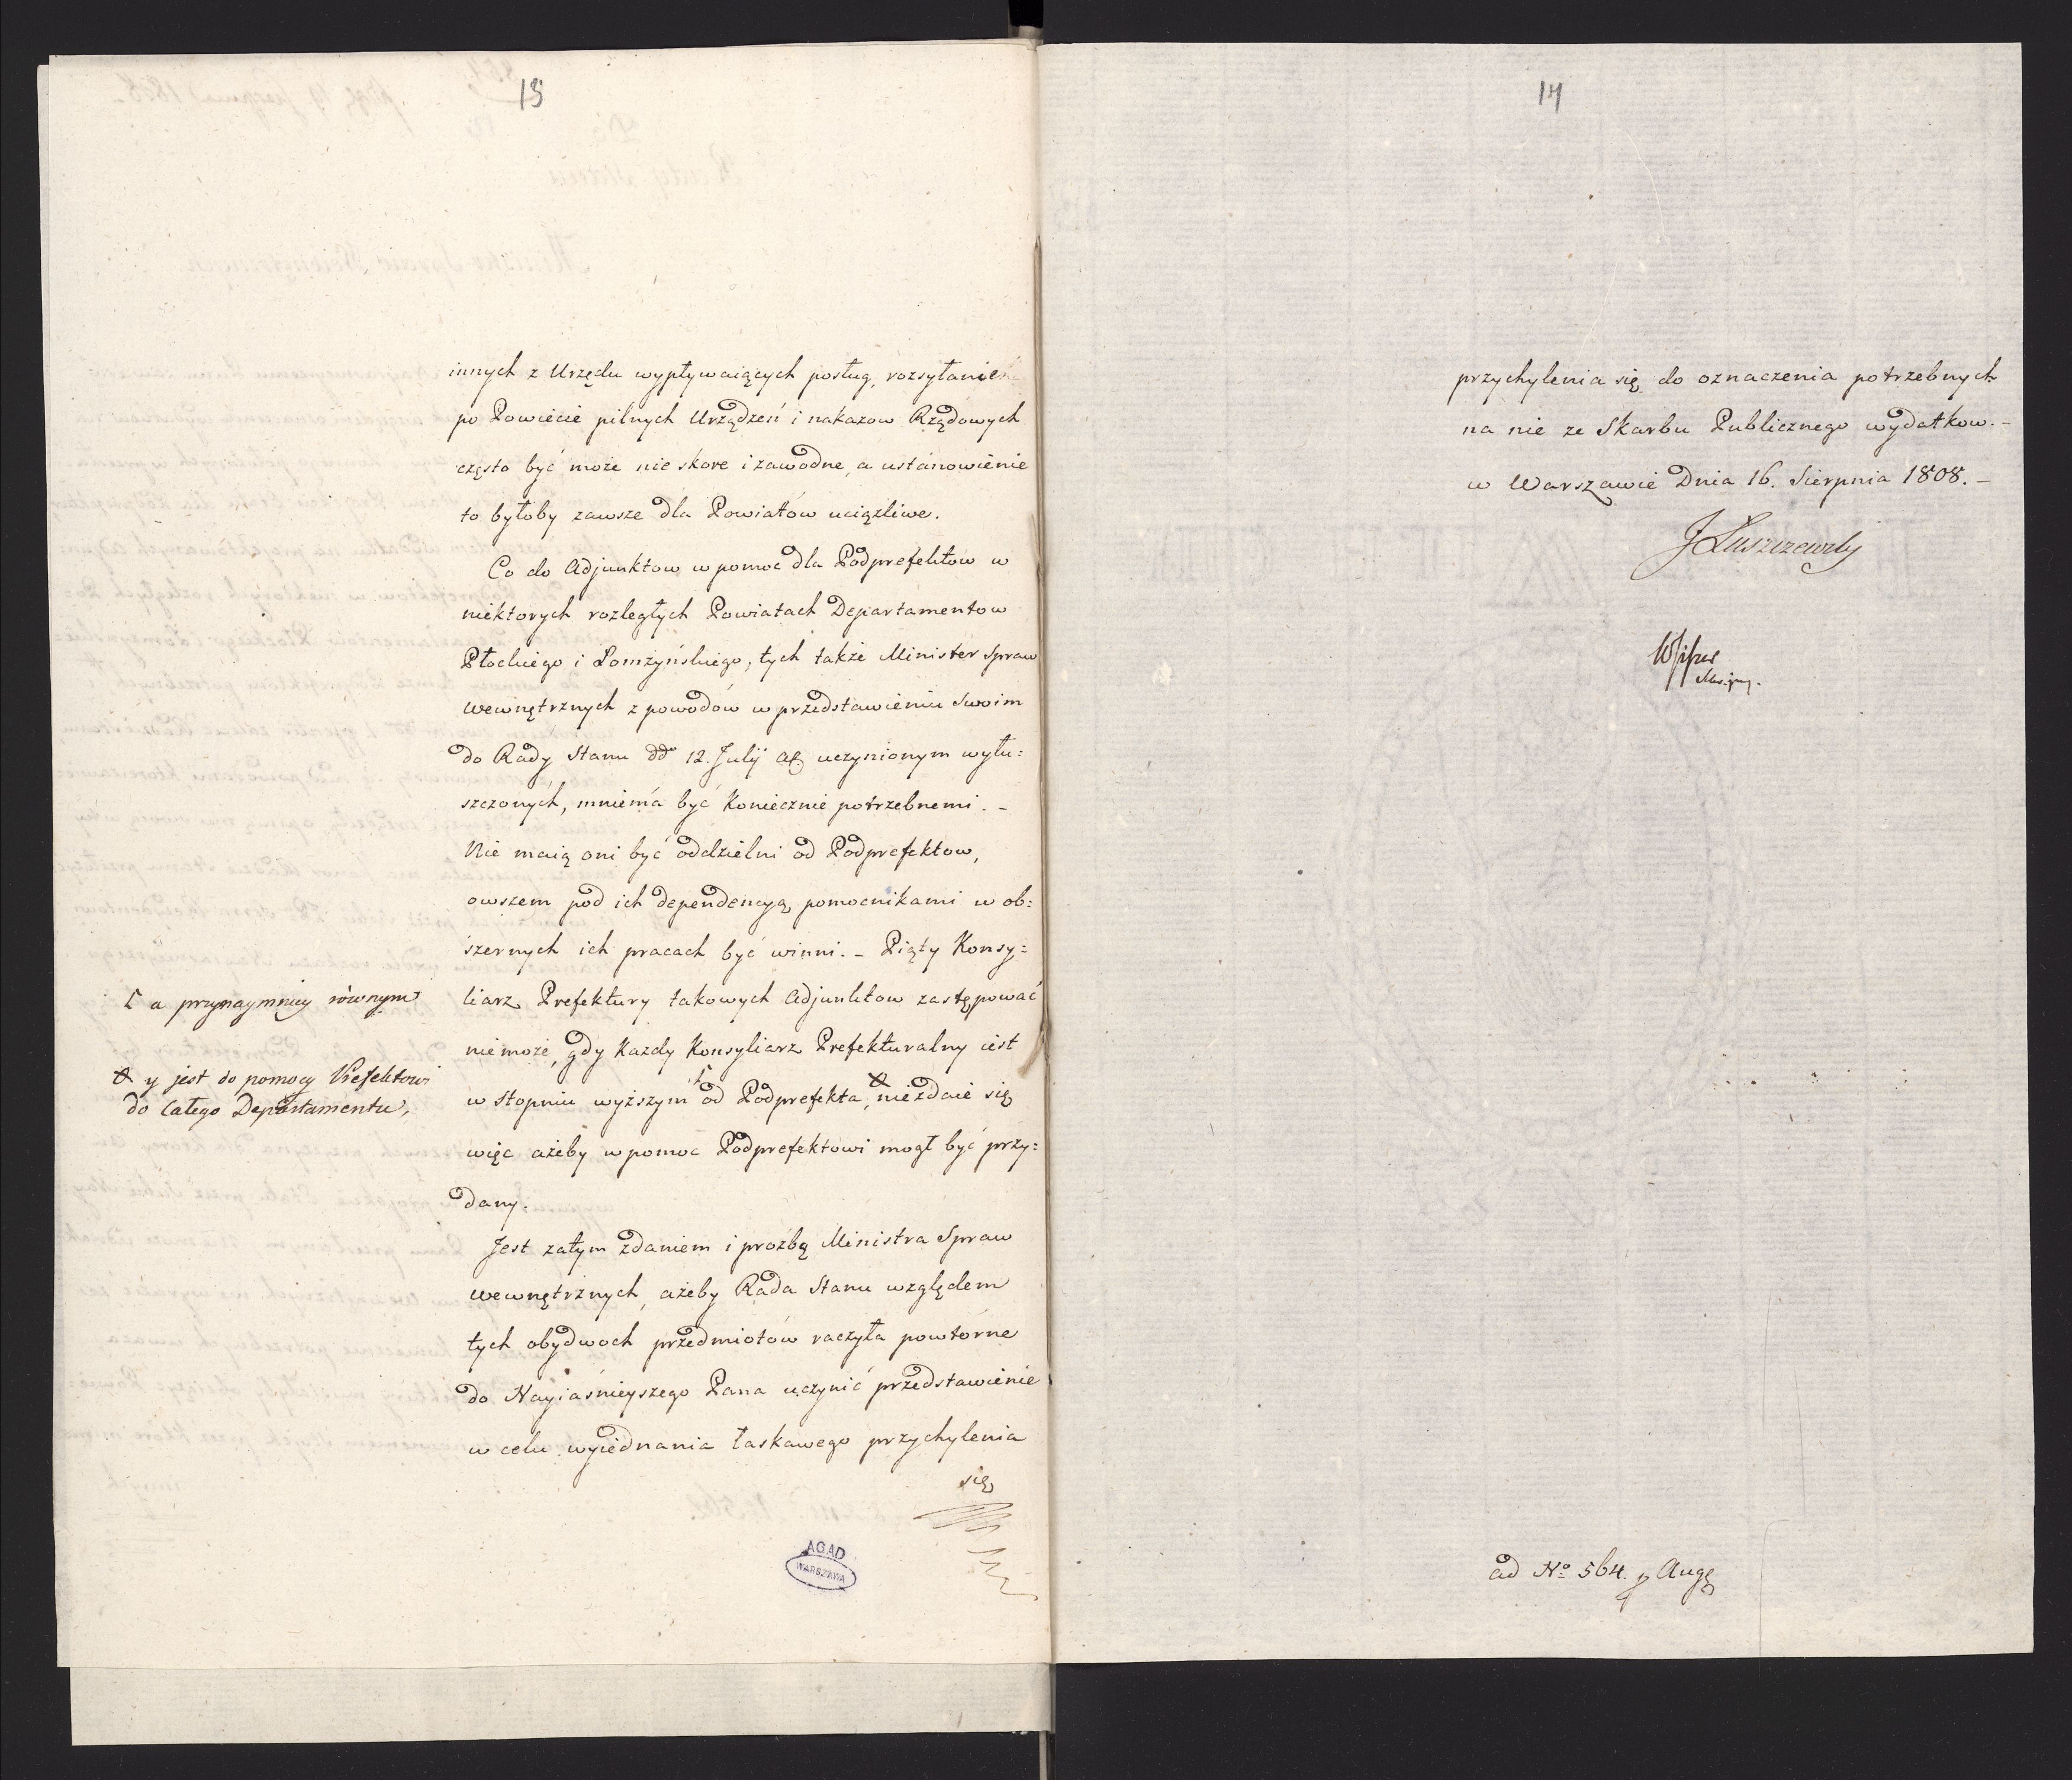 13
innych z Urzędu wypływaiących posług, rozsyłanie
po Powiecie pilnych Urządzeń i nakazow Rządowych
często być może nie skore i zawodne, a ustanowienie
to byłoby zawsze dla Powiatów uciążliwe.
Co do Adjunktow w pomoc dla Podprefektow w
niektorych rozległych Powiatach Departamentow
Płockiego i Łomżyńskiego, tych także Minister Spraw
Wewnętrznych z powodów w przedstawieniu Swoim
do Rady Stanu dd° 12. Julij uczynionym wyłu:
szczonych, mniema być Koniecznie potrzebnemi. –
Nie maią oni być oddzielni od Podprefektow,
owszem pod ich dependencyą pomocnikami w ob:
szernych ich pracach być winni. – Piąty Konsy:
liarz Prefektury takowych Adjunktow zastępować
nie może, gdy Każdy Konsyliarz Prefekturalny iest
w Stopniu wyższym od Podprefekta, nie zdaie się
więc ażeby w pomoc Podprefektowi mogł być przy:
dany.
Jest zatym zdaniem i proźbą Ministra Spraw
Wewnętrznych, ażeby Rada Stanu względem
tych obydwoch przedmiotów raczyła powtórne
do Nayiaśnieyszego Pana uczynić przedstawienie
w celu wyiednania łaskawego przychylenia
się
a przynaymniey równym
y jest do pomocy Prefektowi
do całego Departamentu,
AGAD
WARSZAWA
14
przychylenia się do oznaczenia potrzebnych
na nie ze Skarbu Publicznego wydatkow. –
w Warszawie Dnia 16. Sierpnia 1808. –
J Łuszczewski
ad N° 564. Aug